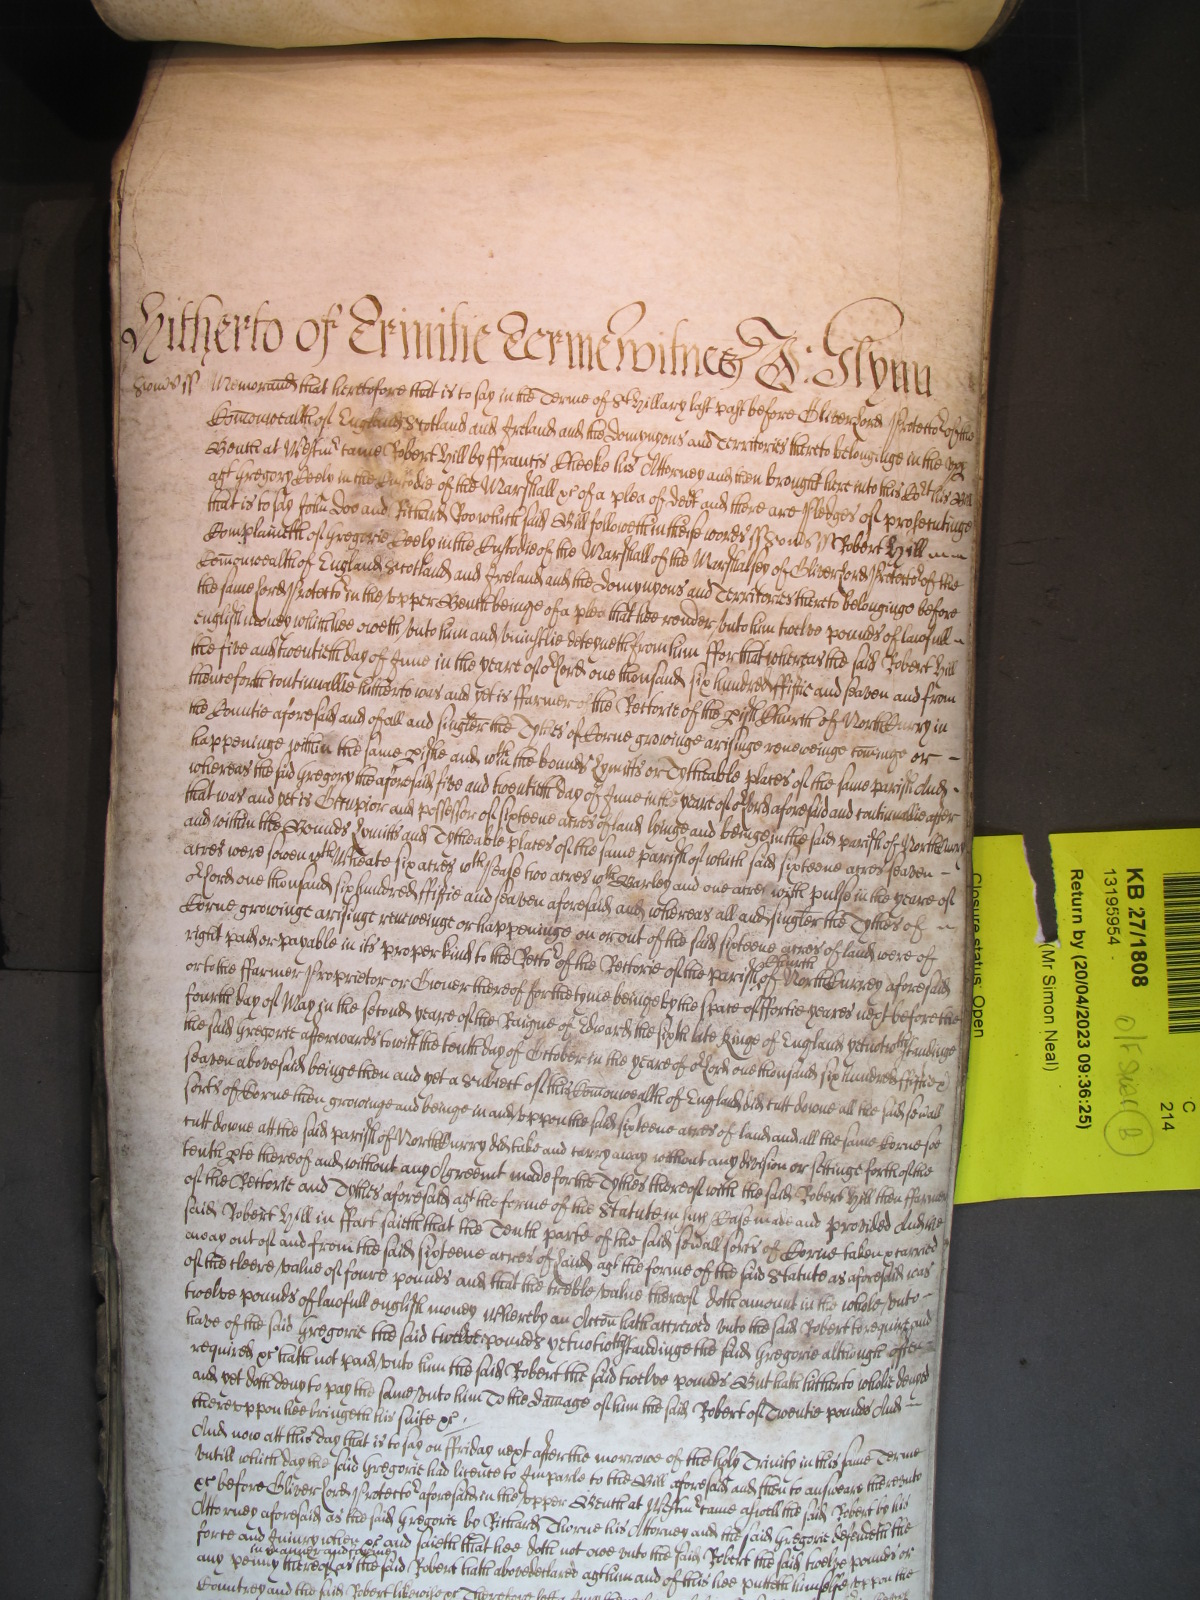 Hitherto of Trinitie Terme Witnes J: Glynn
Somerst ss Memorand that heretofore that is to say in the Terme of St Hillary last past before Oliver Lord Protector of the
Comonwealth of England Scotland and Ireland and the Domynyons and Territories thereto belonginge in the upp
Bench at Westmr came Robert Hill by Ffrancis Cheeke his Attorney and then brought here into this Cort his Bill
agt Gregory Keely in the Custodie of the Marshall &c of a plea of debt and there are Pledges of prosecutinge
that is to say John Doo and Richard Roo which said Bill followeth in these words ss Somst ss Robert Hill
Complaineth of Gregorie Keely in the Custodie of the Marshall of the Marshalsey of Oliver Lord Protector of the
Comonwealth of England Scotland and Ireland and the Domynyons and Territories thereto belonginge before
the same Lord Protector in the upper Bench beinge of a plea that hee render unto him twelve pounds of lawfull
English money which hee oweth unto him and uniustlie deteyneth from him Ffor that whereas the said Robert Hill
the five and twentieth day of June in the yeare of or Lord one thousand six hundred ffiftie and seaven and from
thenceforth continuallie hitherto was and yet is ffarmer of the Rectorie of the pish Church of North Curry in
the Countie aforesaid and of all and singler the Tythes of Corne growinge arisinge reneweinge cominge or
happeninge within the same pishe and wth the bounds Lymitts or Tytheable places of the same parish And
whereas the said Gregory the aforesaid five and twentieth day of June in the yeare of or Lord aforesaid and continuallie after
that was and yet is Occupior and possessor of sixteene acres of land lyinge and beinge in the said parish of North Curry
and within the Bounds Lymitts and Tytheable places of the same parish of which said sixteene acres seaven
acres were sowen wth Wheate six acres wth Pease two acres wth Barley and one acre with pulse in the yeare of
or Lord one thousand six hundred ffiftie and seaven aforesaid and whereas all and singler the Tythes of
Corne growinge arisinge reneweinge or happeninge on or out of the said sixteene acres of land were of
right paid or payable in its proper kind to the Rector of the Rectorie of the parish Church of North Currey aforesaid
or to the ffarmer Proprietor or Owner thereof for the tyme beinge by the space of ffortie yeares next before the
fourth day of May in the second yeare of the Raigne of Edward the sixth late Kinge of England yet notwthstandinge
the said Gregorie afterwards to witt the tenth day of October in the yeare of or Lord one thousand six hundred ffiftie &
seaven abovesaid beinge then and yet a Subiect of this Comonwealth of England did cutt downe all the said sevall
sorts of Corne then growinge and beinge in and uppon the said sixteene acres of land and all the same Corne soe
cutt downe att the said parish of North Curry did take and carry away without any division or settinge forth of the
tenth pte thereof and without any Agreemt made for the Tythes thereof with the said Robert Hill then ffarmer
of the Rectorie and Tythes aforesaid agt the forme of the Statute in such Case made and provided And the
said Robert Hill in ffact saieth that the Tenth parte of the said sevall sorts of Corne taken & carried
away out of and from the said sixteene acres of Land agt the forme of the said Statute as aforesaid was
of the cleere value of foure pounds and that the treble value thereof doth amount in the whole unto
twelve pounds of lawfull english money Whereby an Accon hath accrewed unto the said Robert to require and
have of the said Gregorie the said twelve pounds yet notwthstandinge the said Gregorie although often
required &c hath not paid unto him the said Robert the said twelve pounds But hath hitherto wholie denyed
and yet doth deny to pay the same unto him To the damage of him the said Robert of Twentie pounds And
thereuppon hee bringeth his suite &c
And now att this day that is to say on Ffriday next after the morrowe of the holy Trinity in this same Terme
untill which day the said Gregorie had licence to Imparle to the Bill aforesaid and then to answeare thereunto
&c before Oliver Lord Protector aforesaid in the upper Bench at Westmr came aswell the said Robert by his
Attorney aforesaid as the said Gregorie by Richard Thorne his Attorney and the said Gregorie defendeth the
force and Iniury when &c and saieth that hee doth not owe unto the said Robert the said twelve pounds or
any penny thereof in manner and forme as the said Robert hath above declared agt him and of this hee putteth himselfe uppon the
Countrey and the said Robert likewise &c Therefore
KB 27/1808
13195954
Return by (20/04/2023 09:36:25)
(Mr Simon Neal)
Closure status: Open
C
214
B